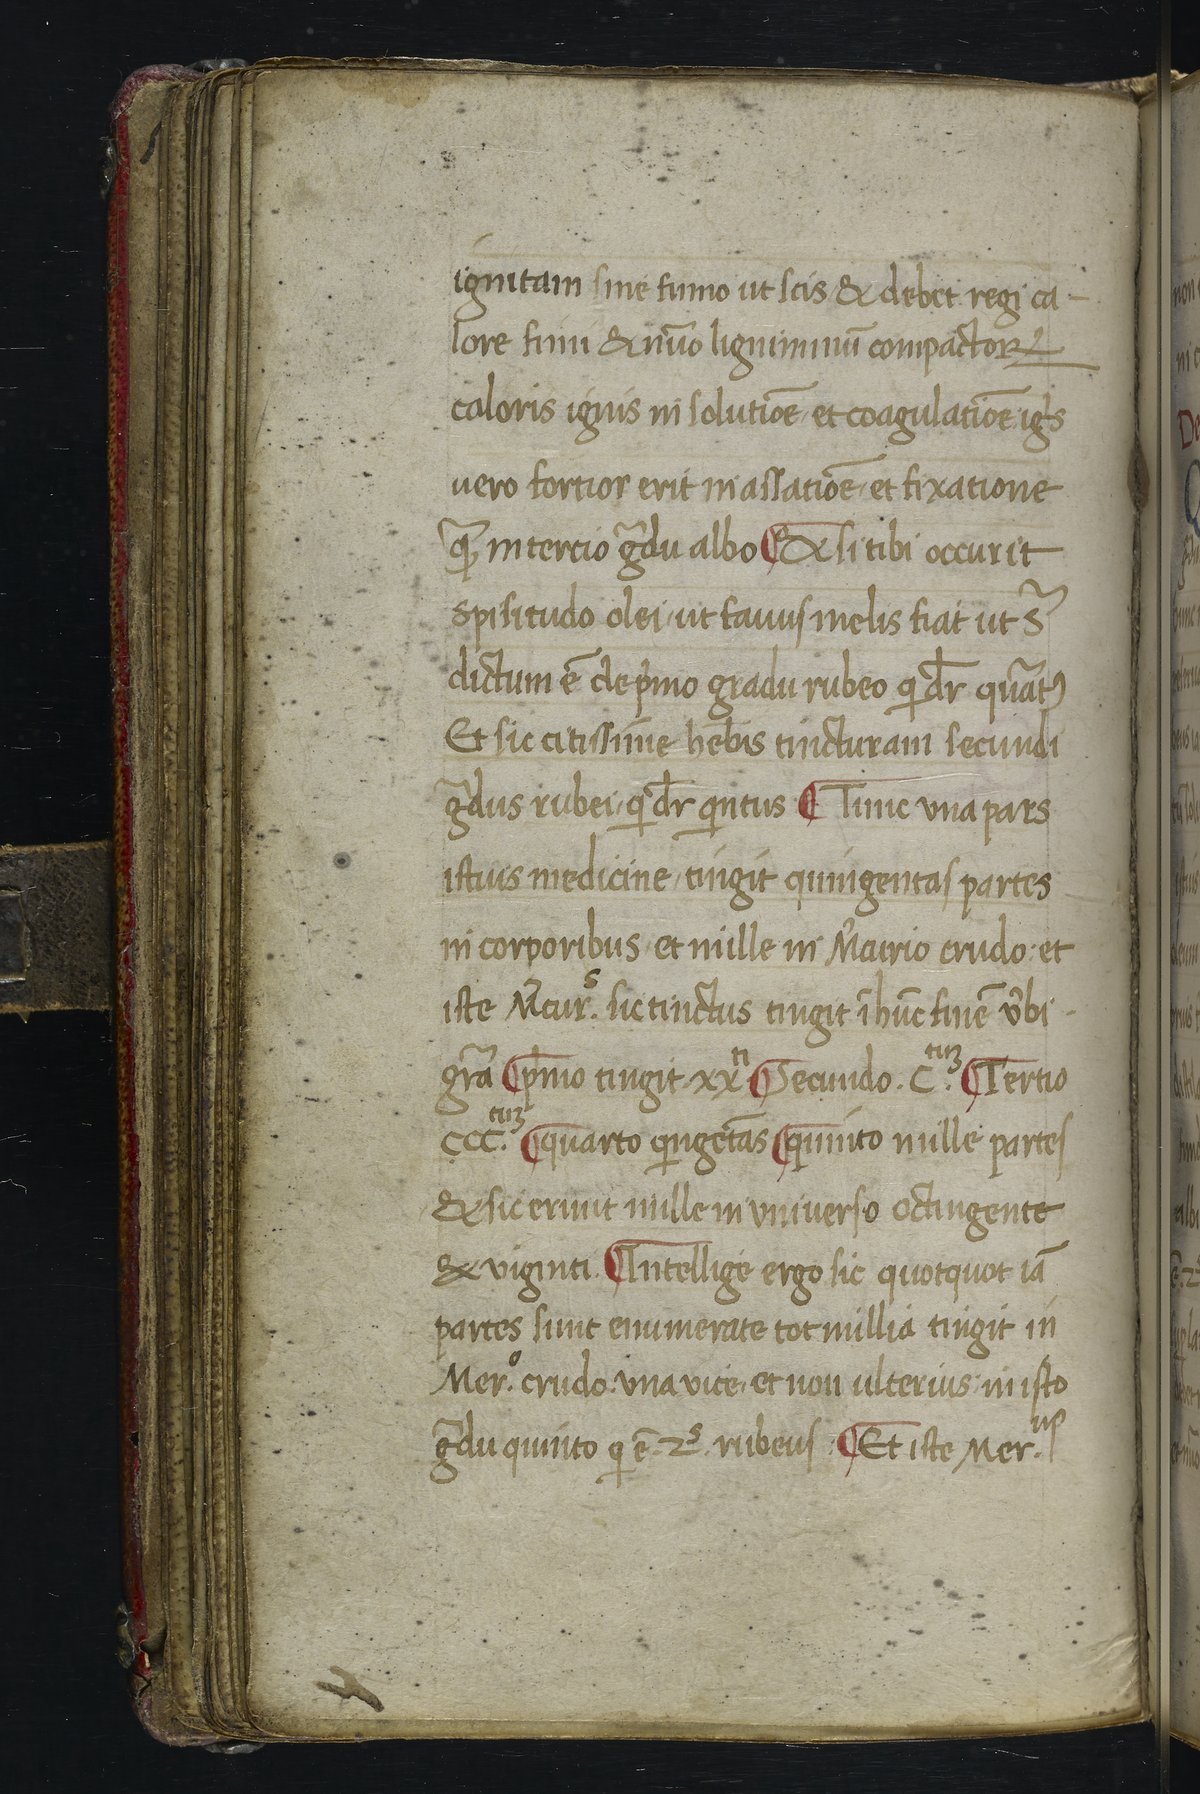 ignitam sine fumo ut scis & debet regi ca-
lore fimi & nūo ligniminuū compactoꝝ
caloris ignis in solutiōe et coagulatiōe igs̄
uero fortior erit in assatiōe et fixatione
qm̄ in tercio gͣdu albo ¶ & si tibi occurit
spisitudo olei ut fauus melis fiat ut Sᷓ
dictum ē de pͥmo gradu rubeo qͥ dr̄ quātꝰ
Et sic citissime hēbis tincturam secundi
gͣdus rubei qͥ dr̄ qͥntus ¶ Tunc vna pars
istius medicine tingit quingentas partes
in corporibus et mille in M̄curio crudo et
iste M̄curˢ. sic tinctus tingit ī hūc finē v̄bi
grā ¶ pͥmo tingit xxᵗⁱ ¶ Secundo . C.ᵗᵘᵐ ¶ Tertio
CCC.ᵗᵘᵐ ¶ quarto qͥngētas ¶ quinto mille partes
& sic erunt mille in vniuerso octingente
& viginti. ¶ Intellige ergo sic quotquot iā
partes sunt enumerate tot millia tingit in
Mer.ᵒ crudo vna vice et non ulterius in isto
gͣdu quinto qͥ ē .2ˢ. rubeus ¶ Et iste Mer.ᵘˢ